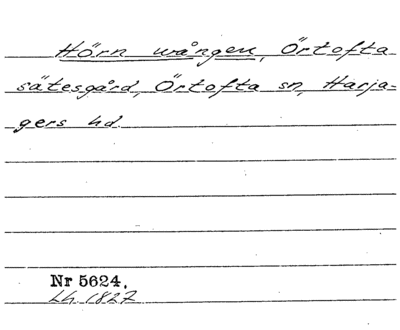 Hörn wången, Örtofta
sätesgård, Örtofta sn, Harja-
gers hd.
Nr 5624.
Lh. 1827